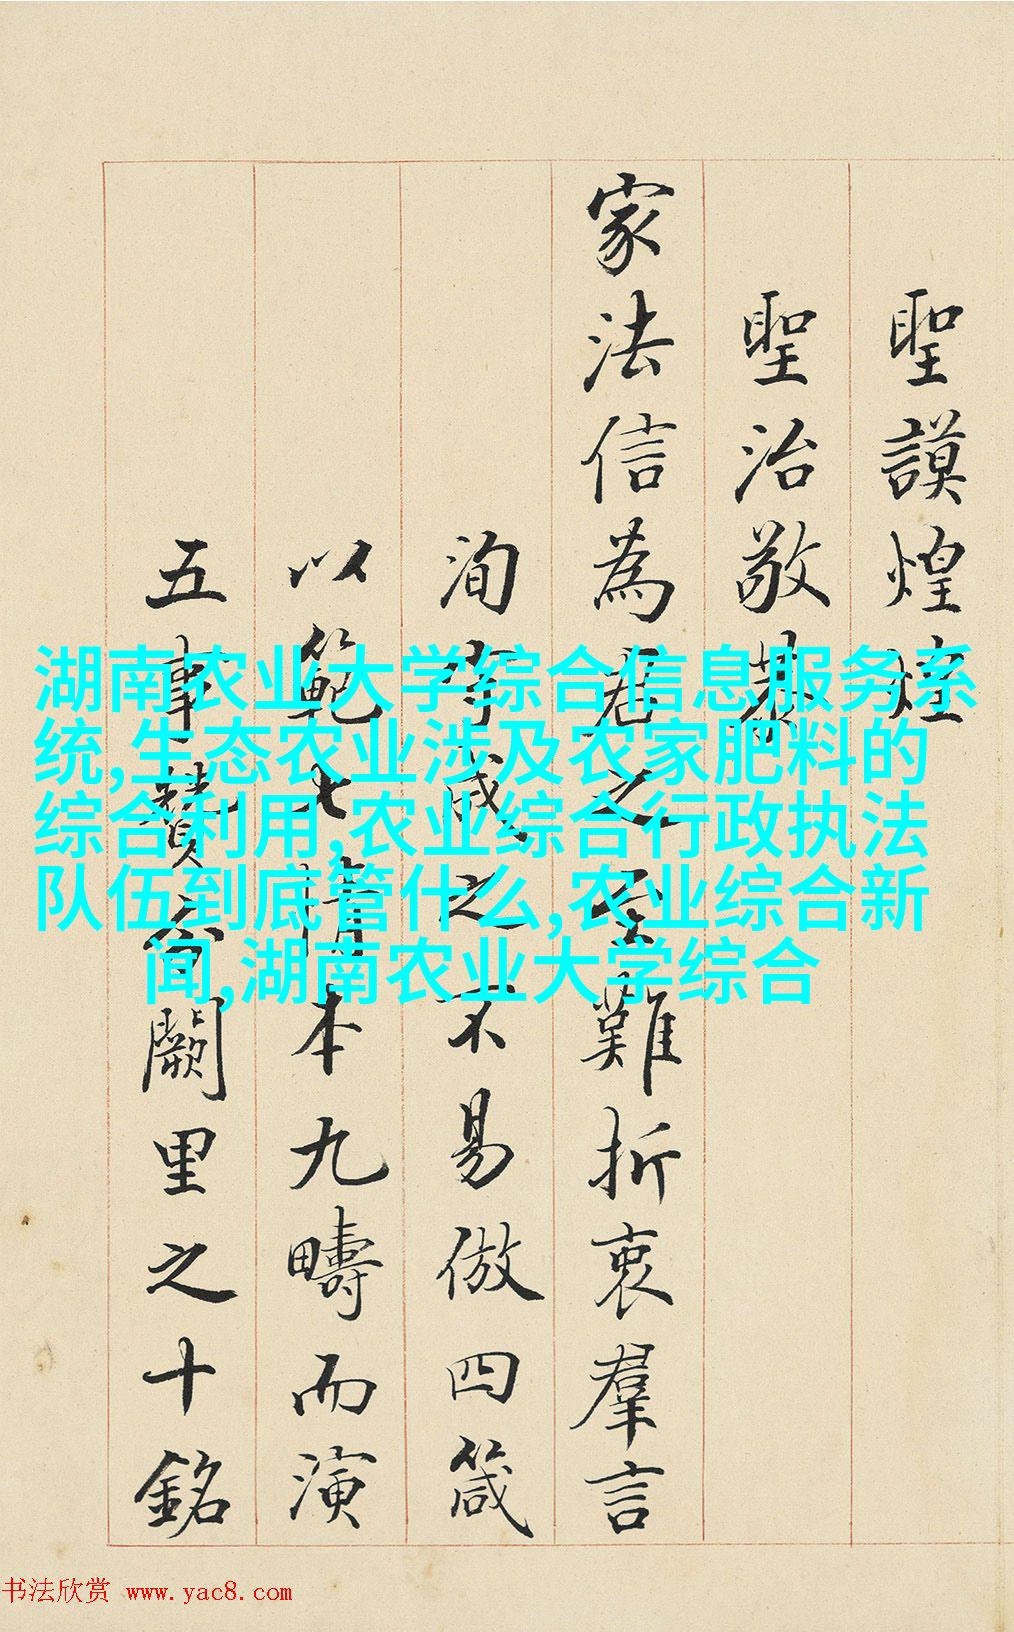 聖謨煌煌
聖治敬
家法信為君之至難折衷羣言
洵守成之不易倣四箴
以範七情本九疇而演
五事贊闕里之十銘
湖南农业大学综合信息服务系
统,生态农业涉及农家肥料的
综合利用,农业综合行政执法
队伍到底管什么,农业综合新
闻,湖南农业大学综合
书法欣赏 www.yac8.com